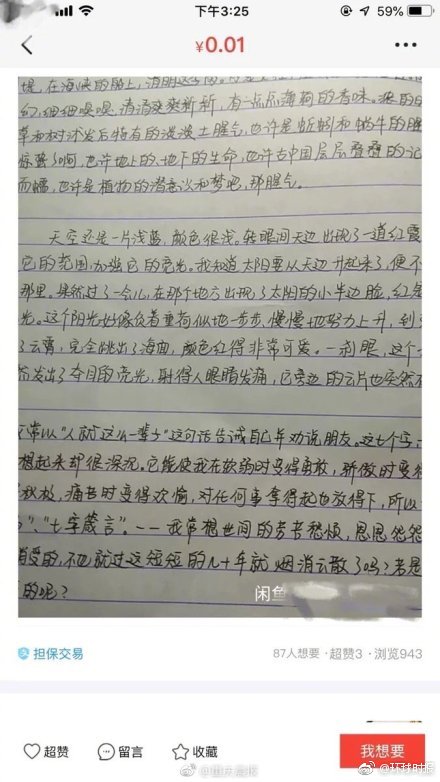 下午3:25
59%
¥0.01
幻,细细嗅嗅,清清爽爽新新,有一点点薄荷的香味。
草和树沐发后特有的淡淡土腥气,也许是蚯蚓和蜗牛的腥
惊蛰了啊,也许地上的地下的生命,也许古中国层层叠叠的记
而蠕,也许是植物的潜意识和梦吧,那腥气。
天空还是一片浅蓝,颜色很浅。转眼间天边出现了一道红霞
它的范围,加强它的亮光。我知道太阳要从天边升起来了,便不
那里。果然过了一会儿,在那个地方出现了太阳的小半边脸,红是
光。这个阳光好像负着重荷似地一步步、慢慢地努力上升,到
了云霄,完全跳出了海面,颜色红得非常可爱。一刹眼,这个
而发出了夺目的亮光,射得人眼睛发痛,它旁边的云片也突然
常以"人就这么一辈子"这句话告诫自己并劝说朋友。这七个字,
想起来却很深沉。它能使我在软弱时变得勇敢,骄傲时变得
痛苦时变得欢愉,对任何事拿得起也放得下,所以
"、"七字箴言"。——我常想世间的劳苦愁烦,恩恩怨怨
受的,不也就过这短短的几十年就烟消云散了吗?若是
的呢?
闲鱼
担保交易
87人想要 · 超赞3 · 浏览943
超赞
留言
收藏
我想要
@重庆晨报
@环球时报